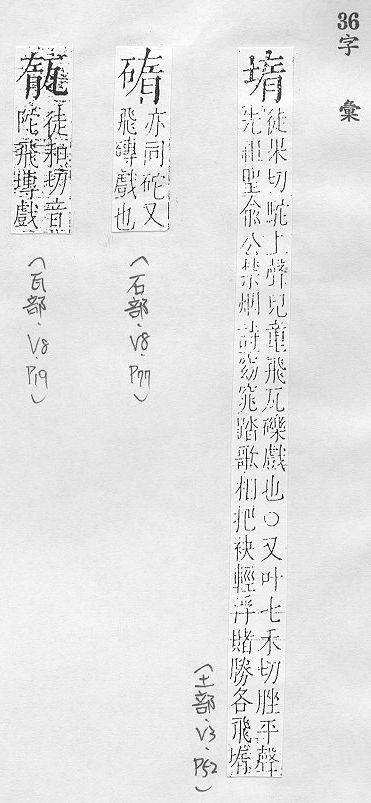 36字彙
堶
徒果切駝上聲兒童飛瓦礫戲也○又叶七禾切脞平聲
先祖聖俞公禁烟詩窈窕踏歌相把袂輕浮賭勝各飛堶
(土部、V3、P52)
亦同砣又
飛磚戲也
(石部、V8、P77)
徒和切音
陀飛塼戲
(瓦部、V8、P19)